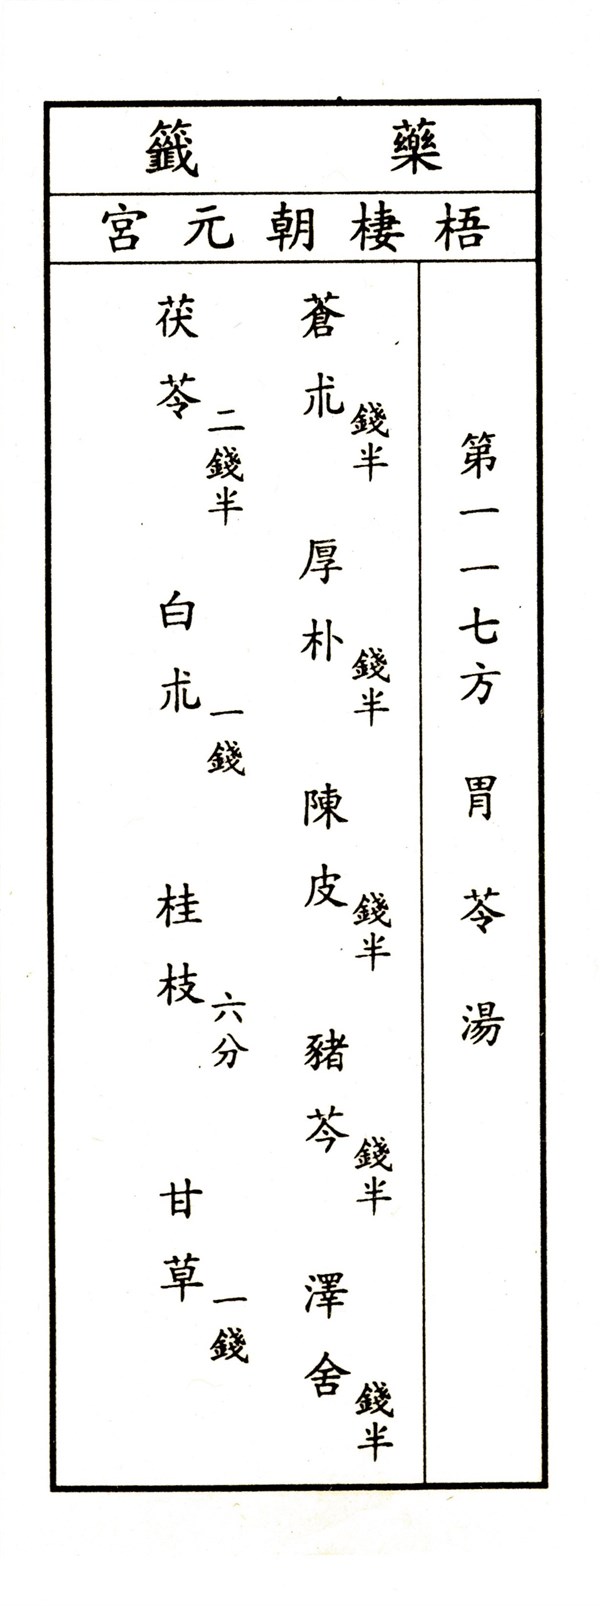 藥籤
梧棲朝元宮
第一一七方 胃苓湯
蒼朮 錢半 厚朴 錢半 陳皮 錢半 豬芩 錢半 澤舍 錢半
茯苓 二錢半 白朮 一錢 桂枝 六分 甘草 一錢